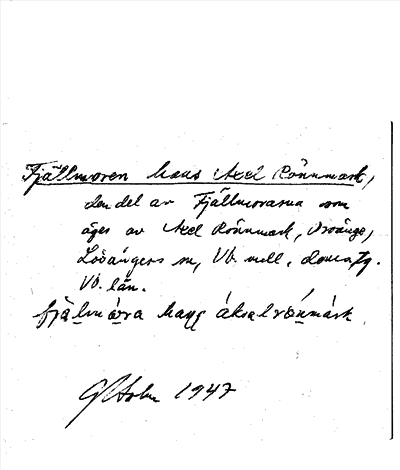 Fjällmoren hans Axel Rönnmark,
den del av Fjällmorarna som
äges av Axel Rönnmark,
Lövångers sn, Vb. mell. doms.
Vb. län.
fjälmora hans áksal rönmárk
1947